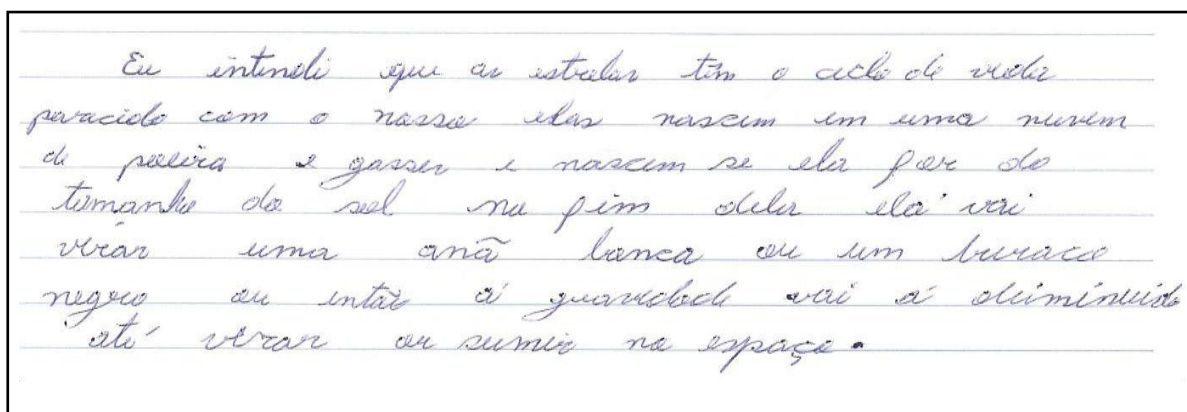 Eu intindi que as estrelas tím o ciclo de vida
paracido com o nosso elas nascem em uma nuvem
de poeira e gasses e nascem se ela for do
tamanho do sol no fim dela ela vai
virar uma anã banca ou um buraco
negro ou intão á guavidade vai á diminuido
até virar ou sumir no espaço.